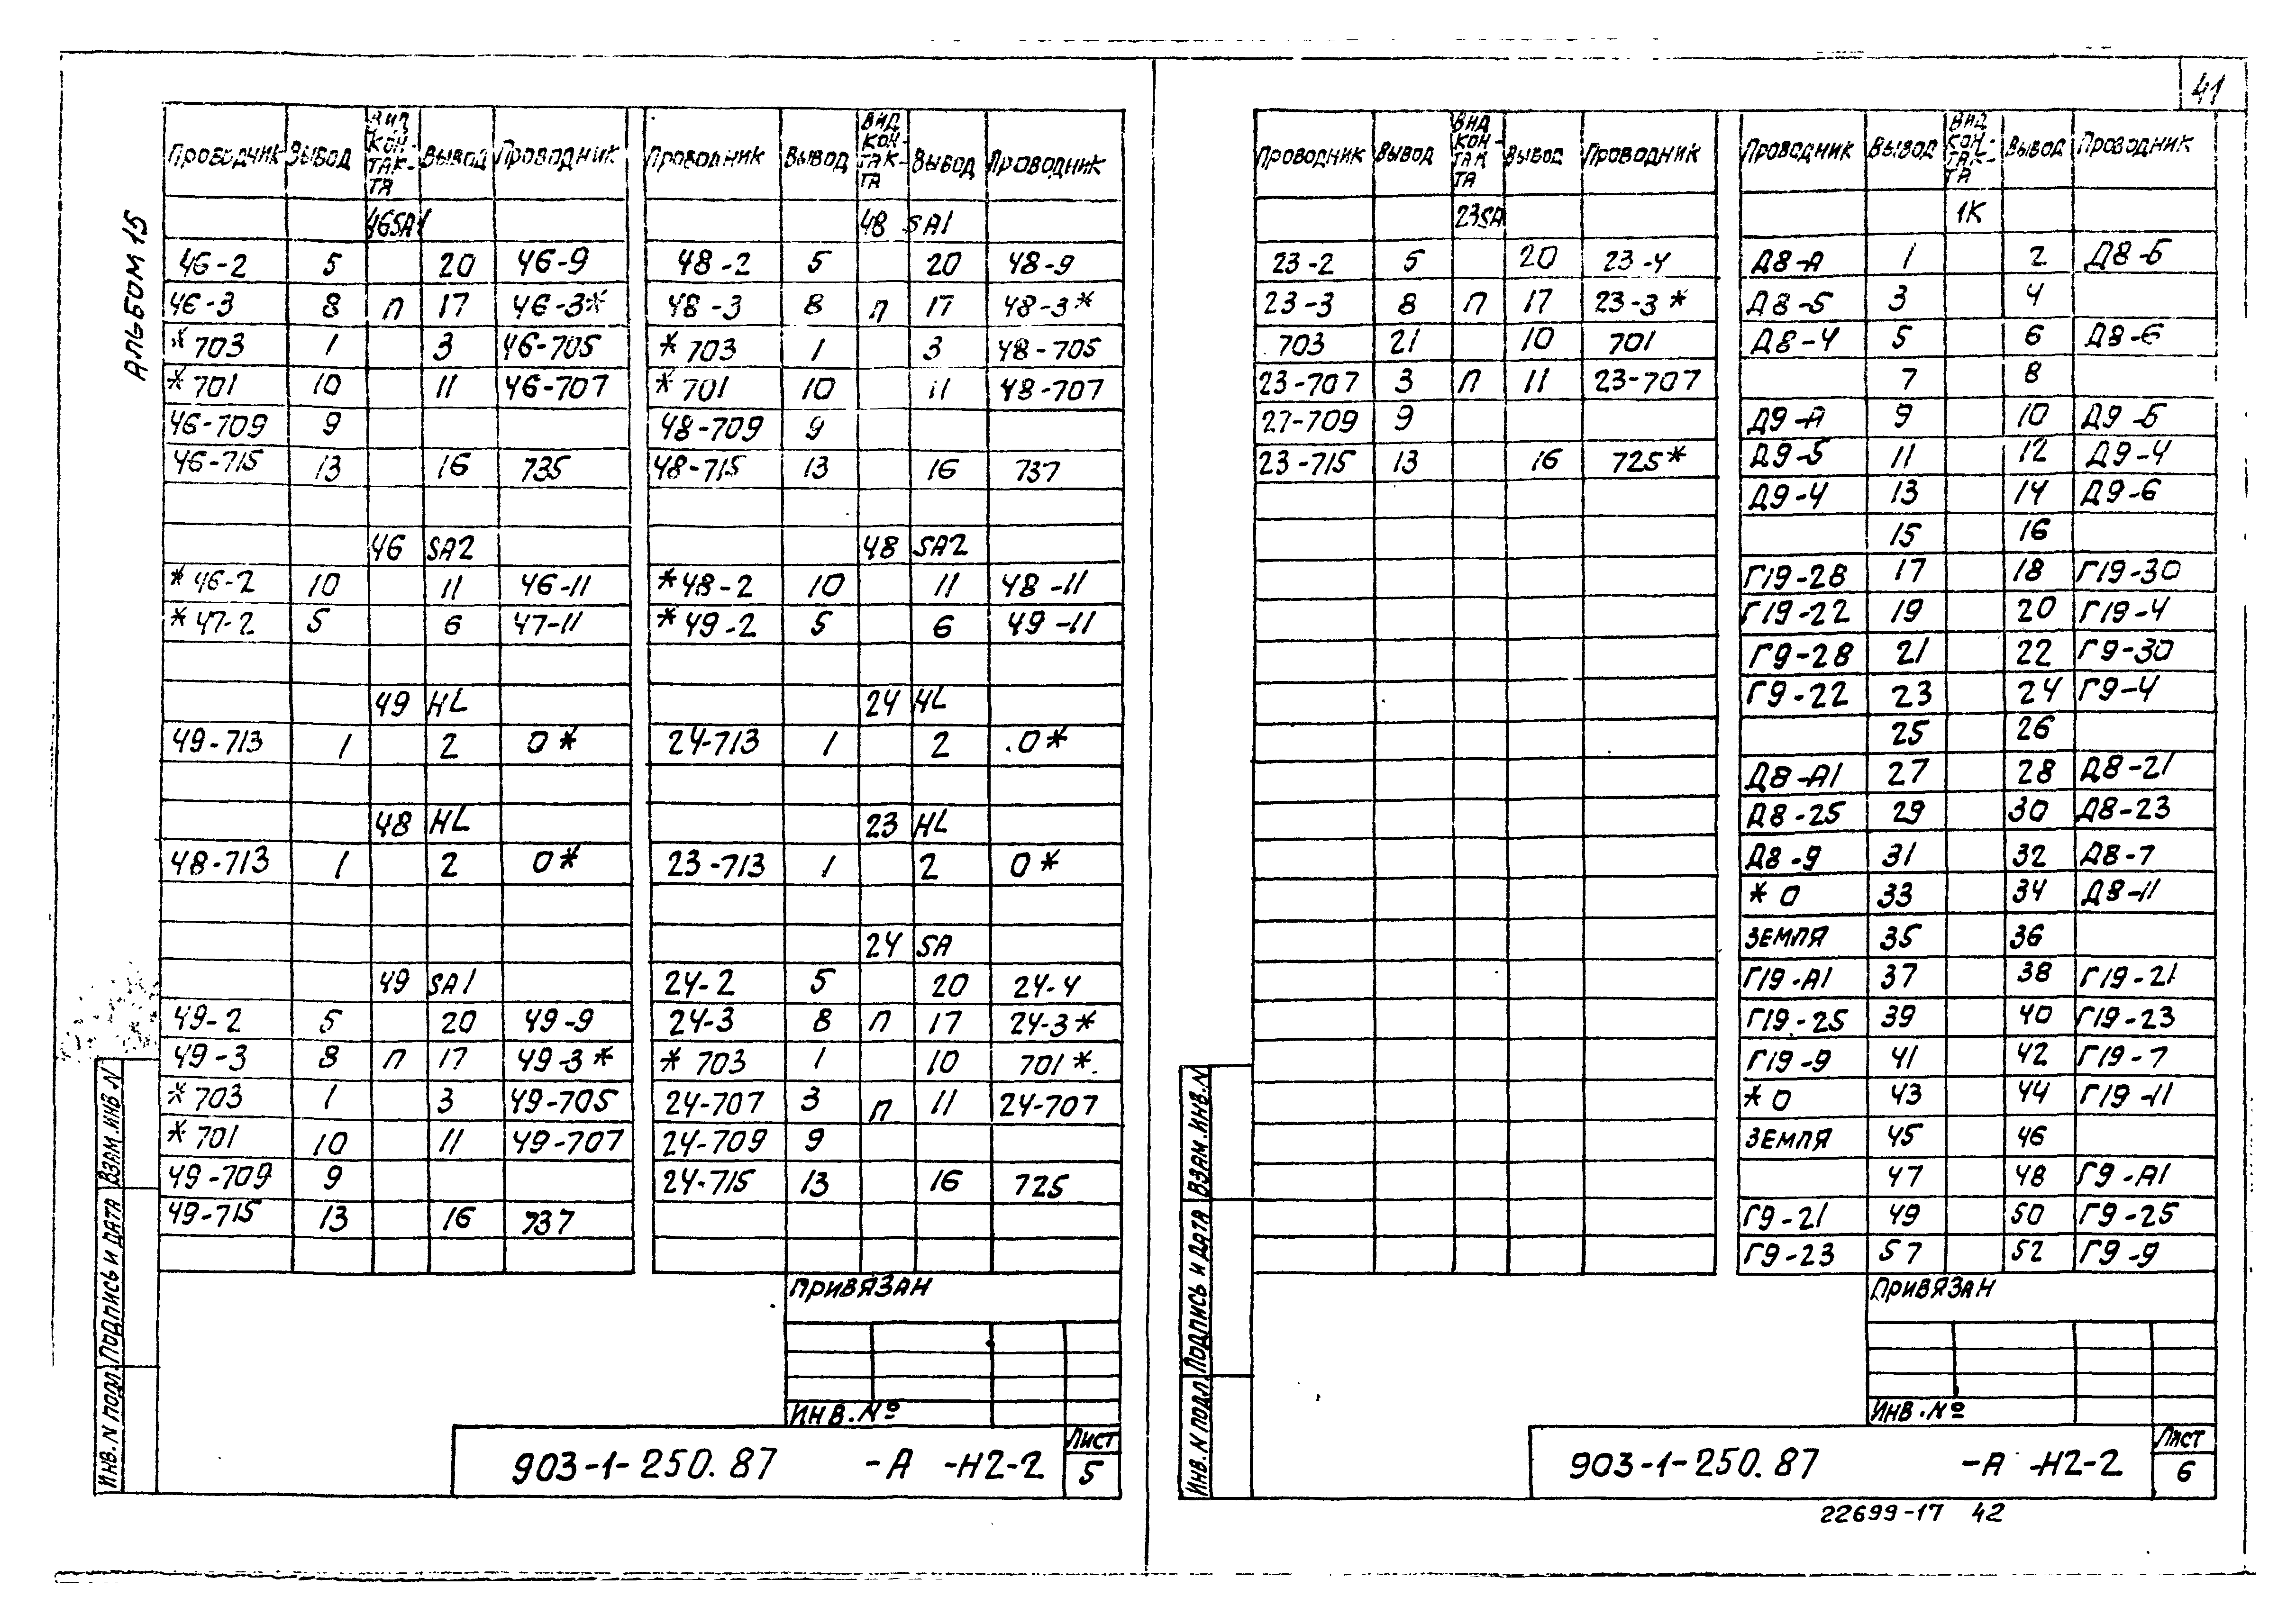 41
АЛЬБОМ 15
Проводник Вывод Вид кон- так- та Вывод Проводник
46SA1
46-2 5 20 46-9
46-3 8 п 17 46-3*
*703 1 3 46-705
*701 10 11 46-707
46-709 9
46-715 13 16 735
46 SA2
*46-2 10 11 46-11
*47-2 5 6 47-11
49 HL
49-713 1 2 0*
48 HL
48-713 1 2 0*
49 SA1
49-2 5 20 49-9
49-3 8 п 17 49-3*
*703 1 3 49-705
*701 10 11 49-707
49-709 9
49-715 13 16 737
Проводник Вывод Вид кон- так- та Вывод Проводник
48 SA1
48-2 5 20 48-9
48-3 8 п 17 48-3*
*703 1 3 48-705
*701 10 11 48-707
48-709 9
48-715 13 16 737
48 SA2
*48-2 10 11 48-11
*49-2 5 6 49-11
24 HL
24-713 1 2 0*
23 HL
23-713 1 2 0*
24 SA
24-2 5 20 24-4
24-3 8 п 17 24-3*
*703 1 10 701*
24-707 3 п 11 24-707
24-709 9
24-715 13 16 725
ПРИВЯЗАН
ИНВ. №
903-1-250.87 -А -Н2-2
Лист
5
Инв. N подл. Подпись и дата Взам. инв. N
Проводник Вывод Вид кон- так- та Вывод Проводник
23SA
23-2 5 20 23-4
23-3 8 п 17 23-3*
703 21 10 701
23-707 3 п 11 23-707
27-709 9
23-715 13 16 725*
Проводник Вывод Вид кон- так- та Вывод Проводник
1К
Д8-А 1 2 Д8-Б
Д8-5 3 4
Д8-4 5 6 Д8-6
7 8
Д9-А 9 10 Д9-Б
Д9-5 11 12 Д9-4
Д9-4 13 14 Д9-6
15 16
Г19-28 17 18 Г19-30
Г19-22 19 20 Г19-4
Г9-28 21 22 Г9-30
Г9-22 23 24 Г9-4
25 26
Д8-А1 27 28 Д8-21
Д8-25 29 30 Д8-23
Д8-9 31 32 Д8-7
*0 33 34 Д8-11
ЗЕМЛЯ 35 36
Г19-А1 37 38 Г19-21
Г19-25 39 40 Г19-23
Г19-9 41 42 Г19-7
*0 43 44 Г19-11
ЗЕМЛЯ 45 46
47 48 Г9-А1
Г9-21 49 50 Г9-25
Г9-23 57 52 Г9-9
ПРИВЯЗАН
ИНВ. №
903-1-250.87 -А -Н2-2
Лист
6
Инв. N подл. Подпись и дата Взам. инв. N
22699-17 42